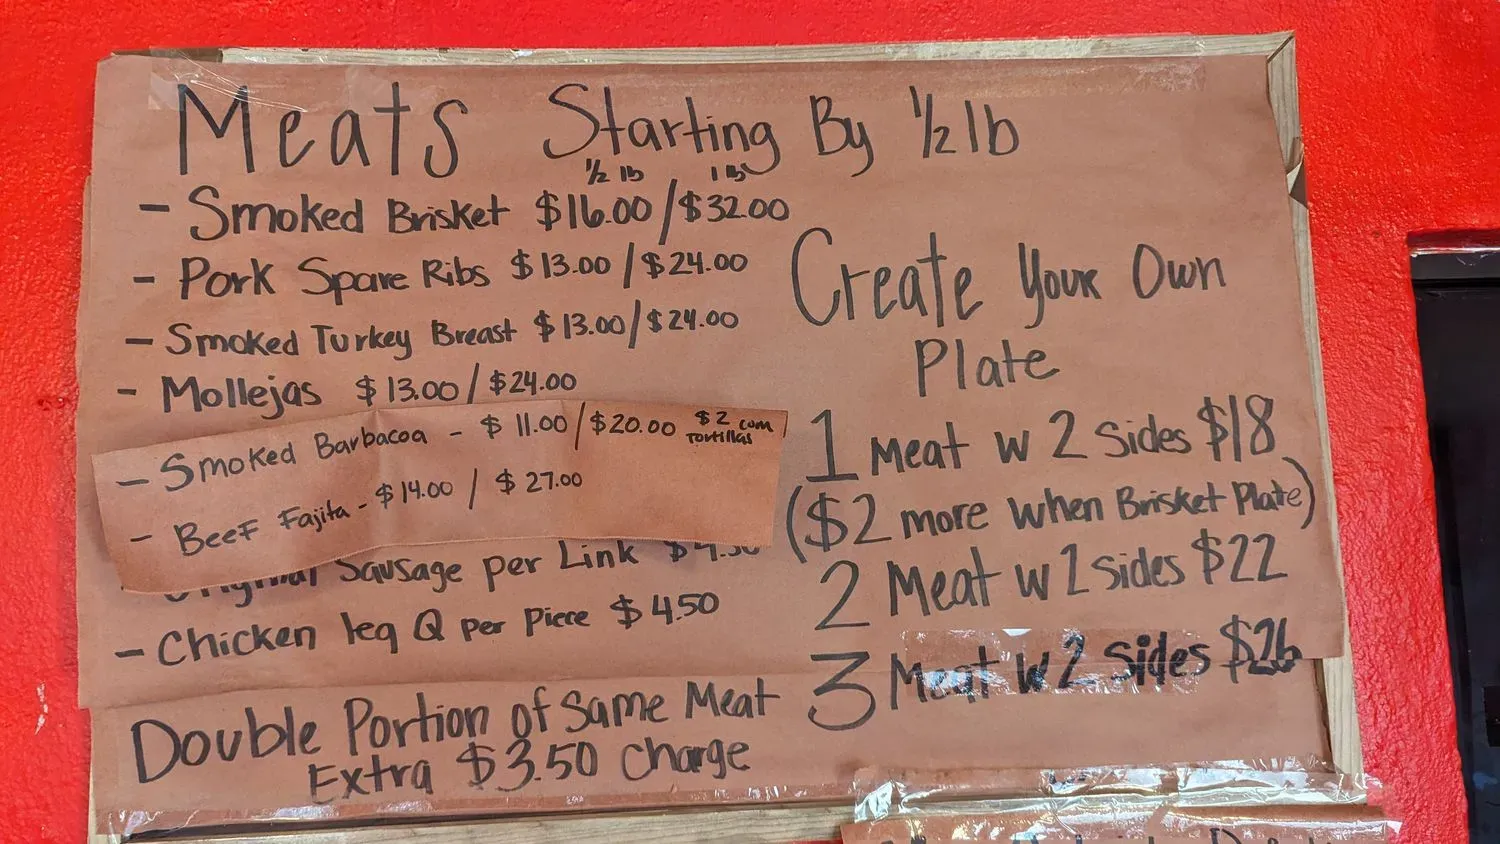 Meats Starting By 1/2 lb
1/2 lb 1 lb
- Smoked Brisket $16.00/$32.00
- Pork Spare Ribs $13.00/$24.00
- Smoked Turkey Breast $13.00/$24.00
- Mollejas $13.00/$24.00
- Smoked Barbacoa - $11.00/$20.00 $2 com
Tortillas
- Beef Fajita - $14.00 / $27.00
Original Sausage per Link $4.50
- Chicken leg Q per Piece $4.50
Double Portion of Same Meat
Extra $3.50 Charge
Create Your Own
Plate
1 Meat w 2 Sides $18
($2 more when Brisket Plate)
2 Meat w 2 sides $22
3 Meat w 2 Sides $26